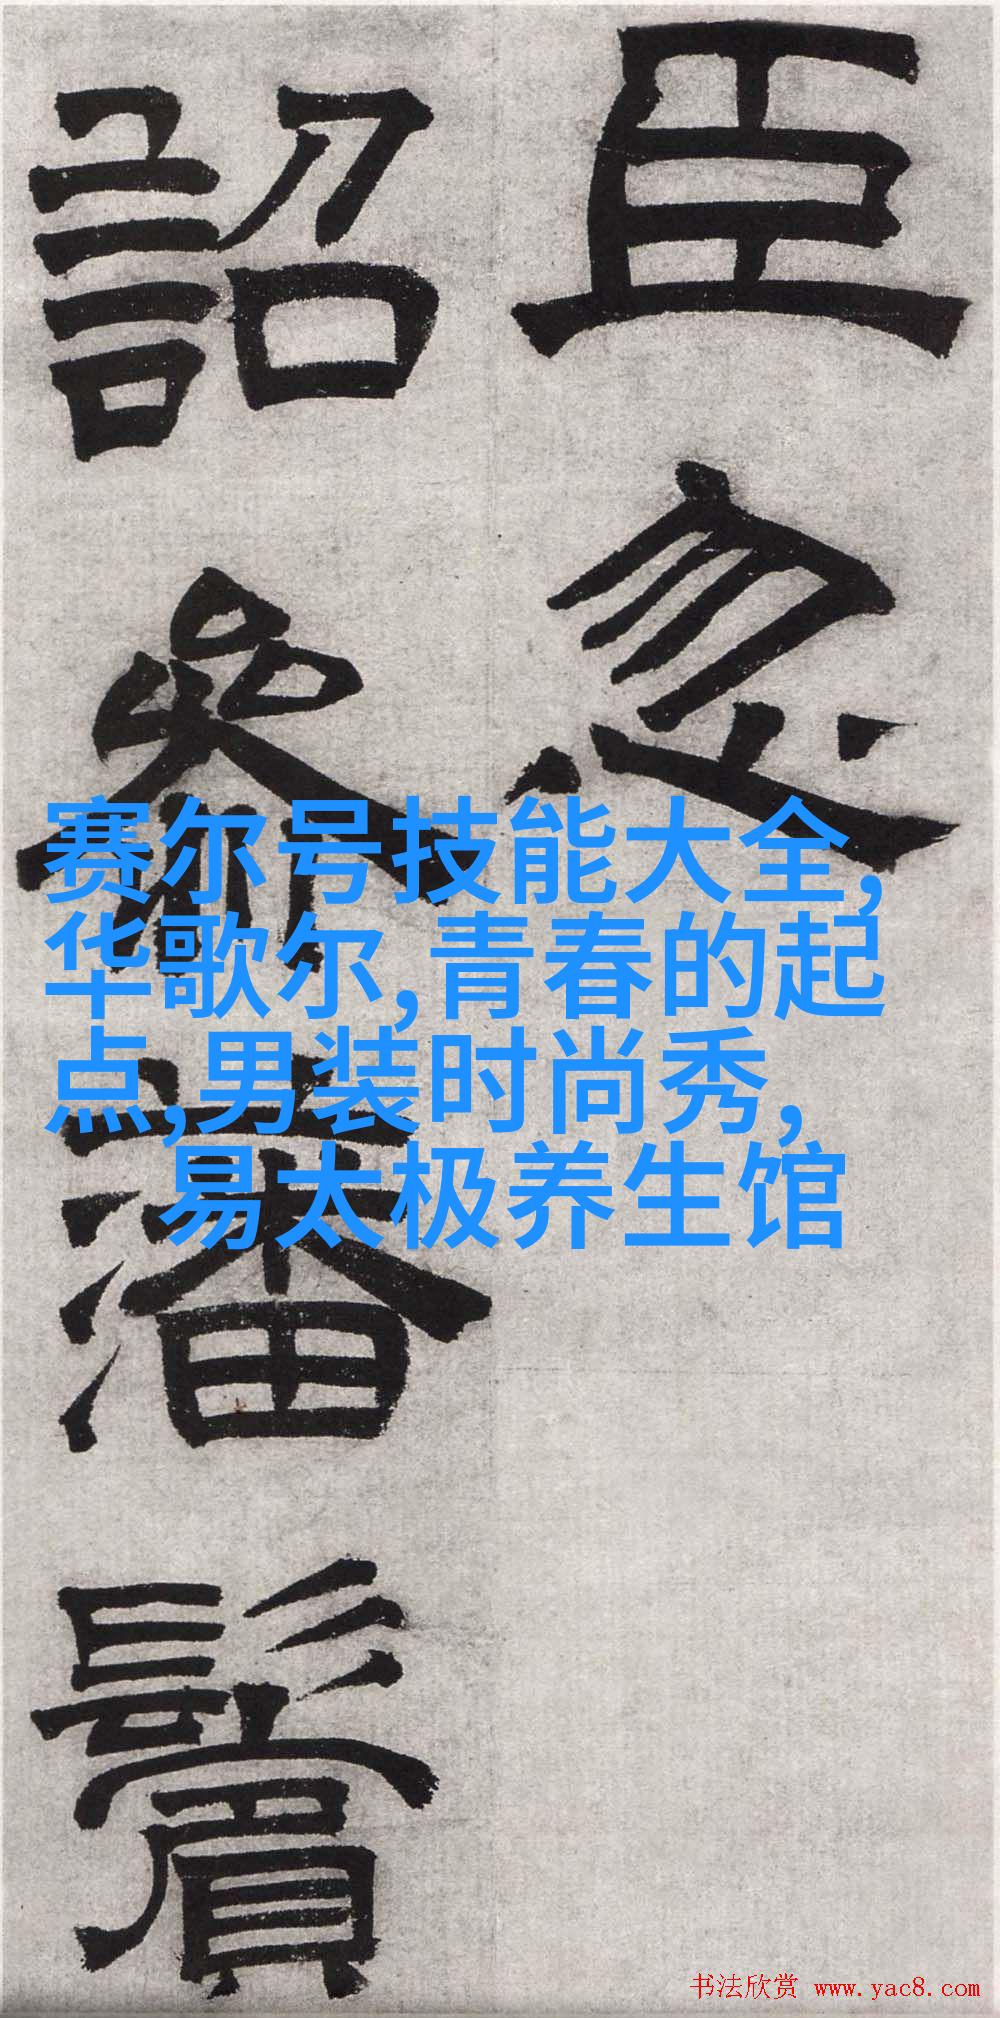 臣忽
詔参潘鬢
赛尔号技能大全,
华歌尔,青春的起
点,男装时尚秀,
易太极养生馆
书法欣赏 www.yac8.com